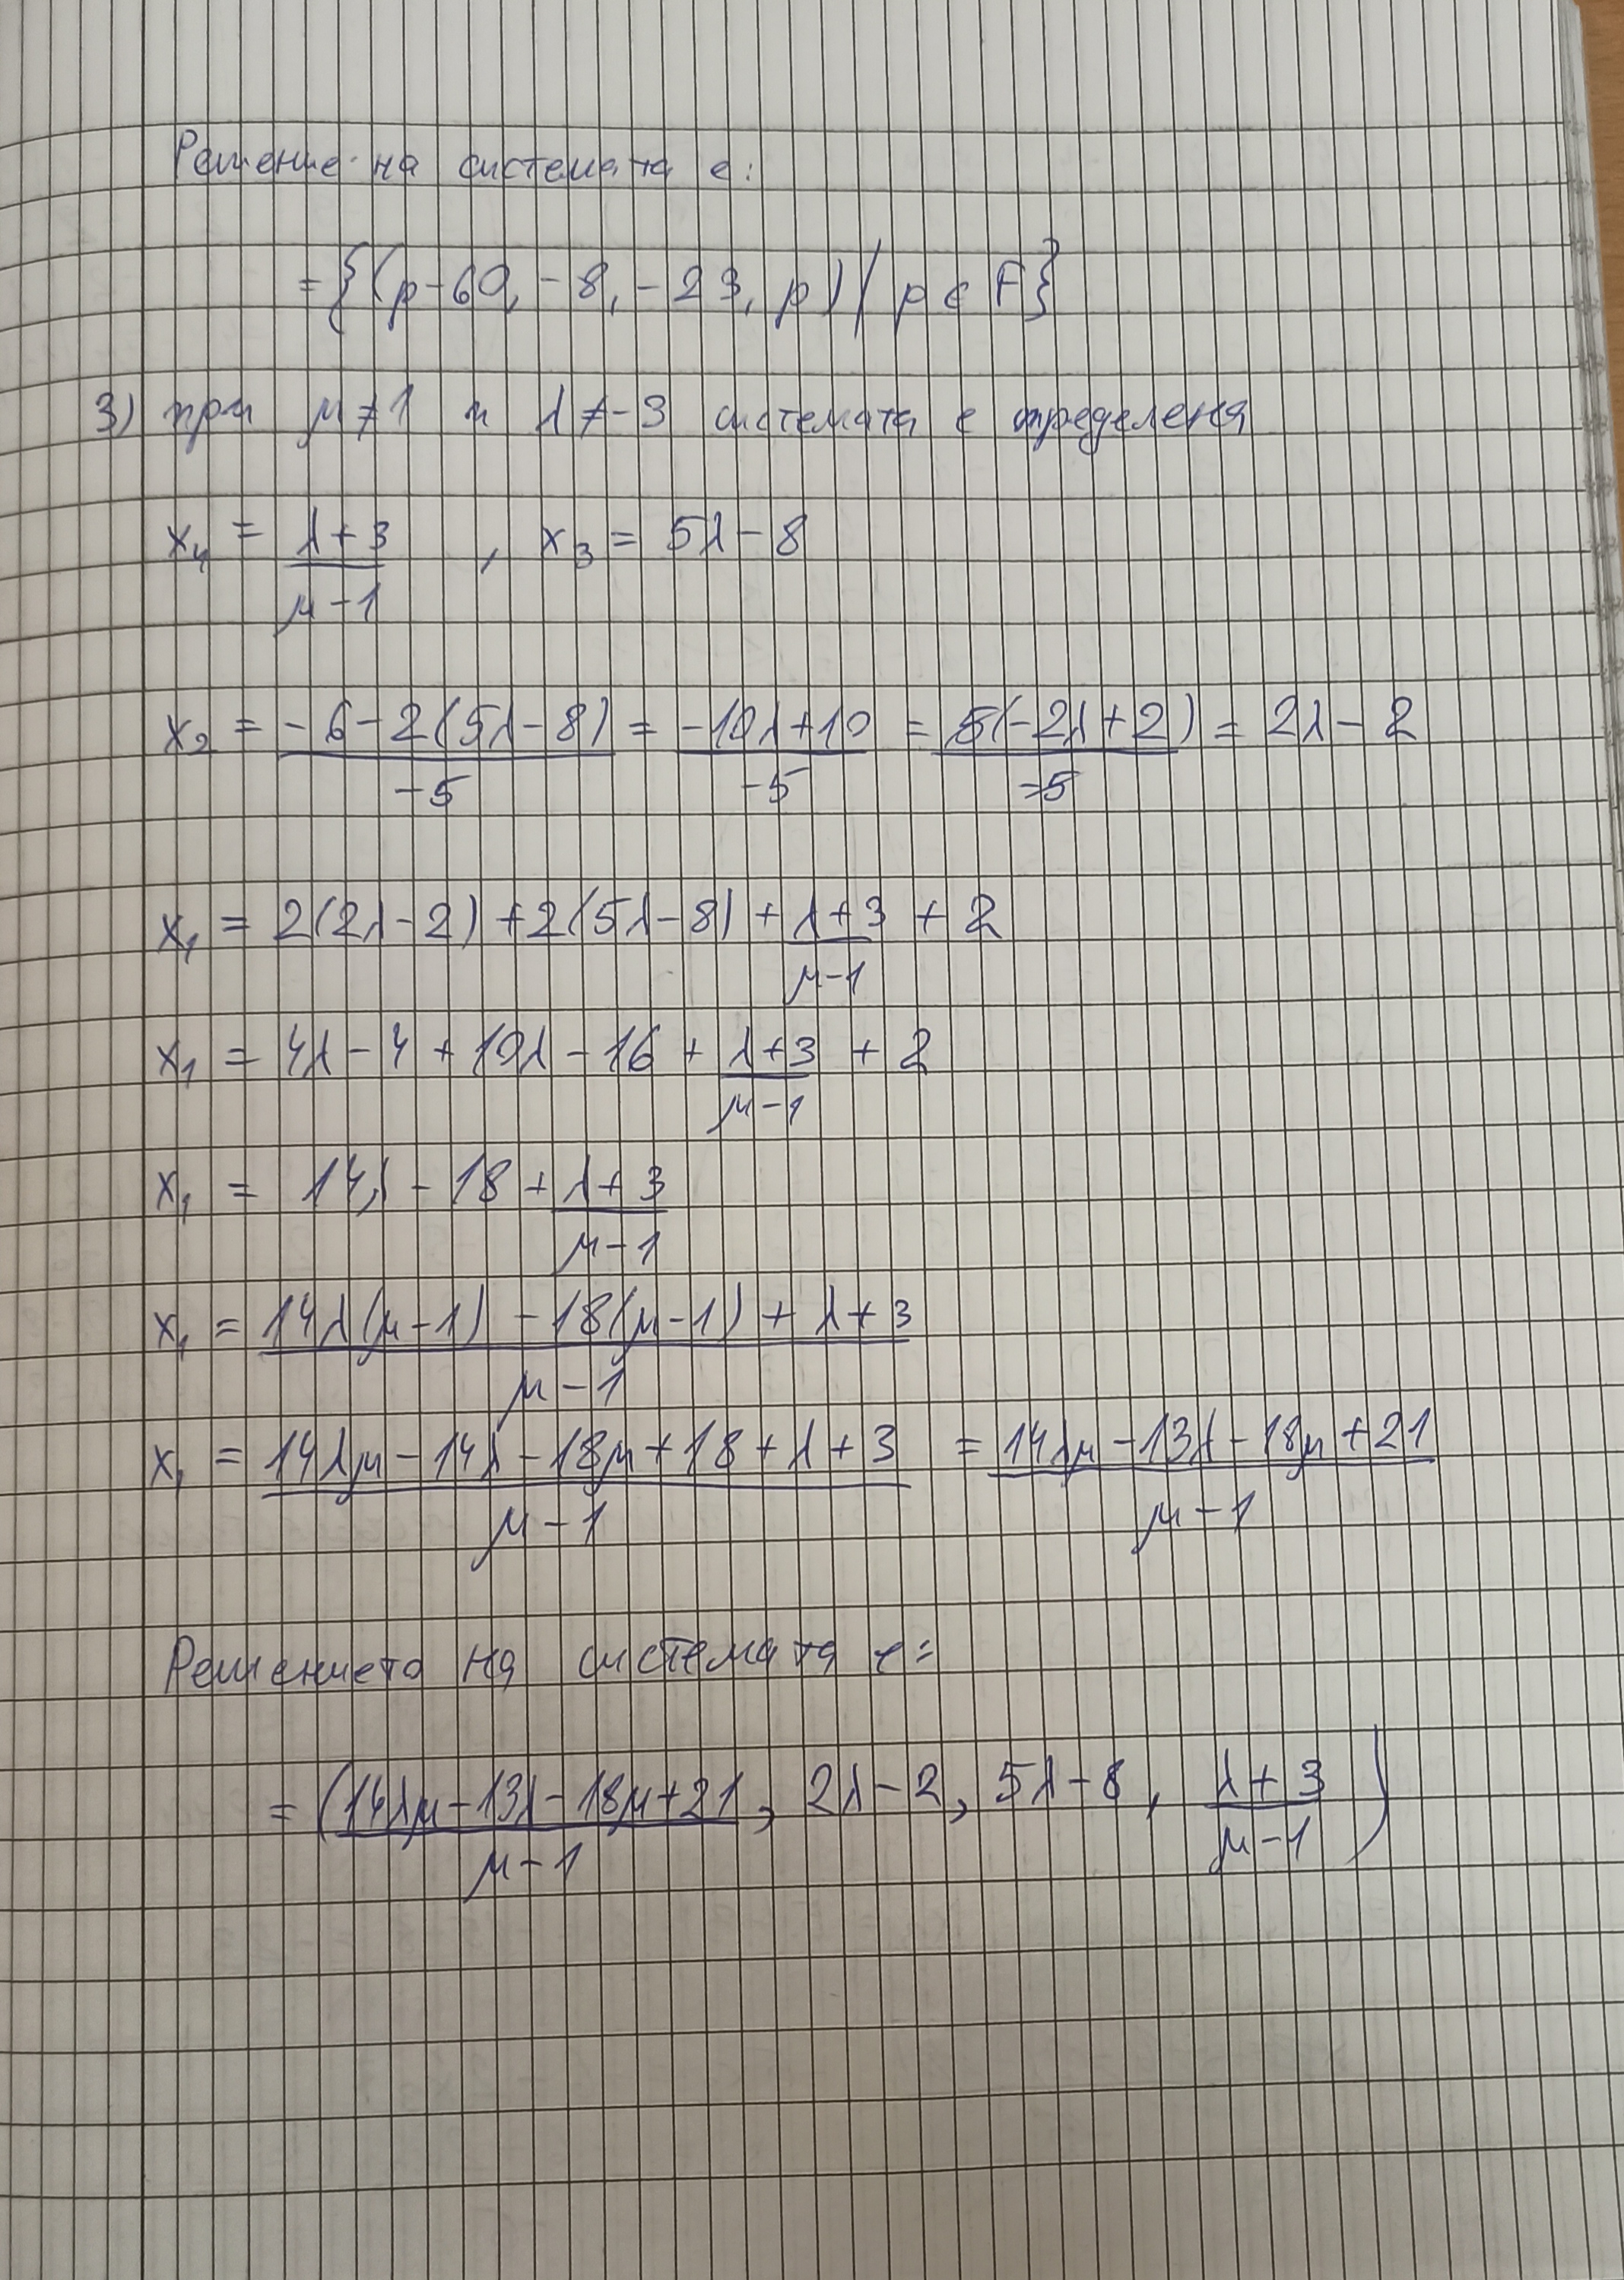 Решение на системата е:
= {(p-60, -8, -23, p) / p ∈ F}
3) при μ ≠ 1 и λ ≠ -3 системата е определена
x₄ = (λ+3)/(μ-1) , x₃ = 5λ-8
x₂ = (-6-2(5λ-8))/(-5) = (-10λ+10)/(-5) = (5(-2λ+2))/(-5) = 2λ-2
x₁ = 2(2λ-2)+2(5λ-8) + (λ+3)/(μ-1) + 2
x₁ = 4λ-4+10λ-16 + (λ+3)/(μ-1) + 2
x₁ = 14λ-18 + (λ+3)/(μ-1)
x₁ = (14λ(μ-1) - 18(μ-1) + λ+3)/(μ-1)
x₁ = (14λμ-14λ-18μ+18+λ+3)/(μ-1) = (14λμ-13λ-18μ+21)/(μ-1)
Решението на системата е:
= ((14λμ-13λ-18μ+21)/(μ-1), 2λ-2, 5λ-8, (λ+3)/(μ-1))